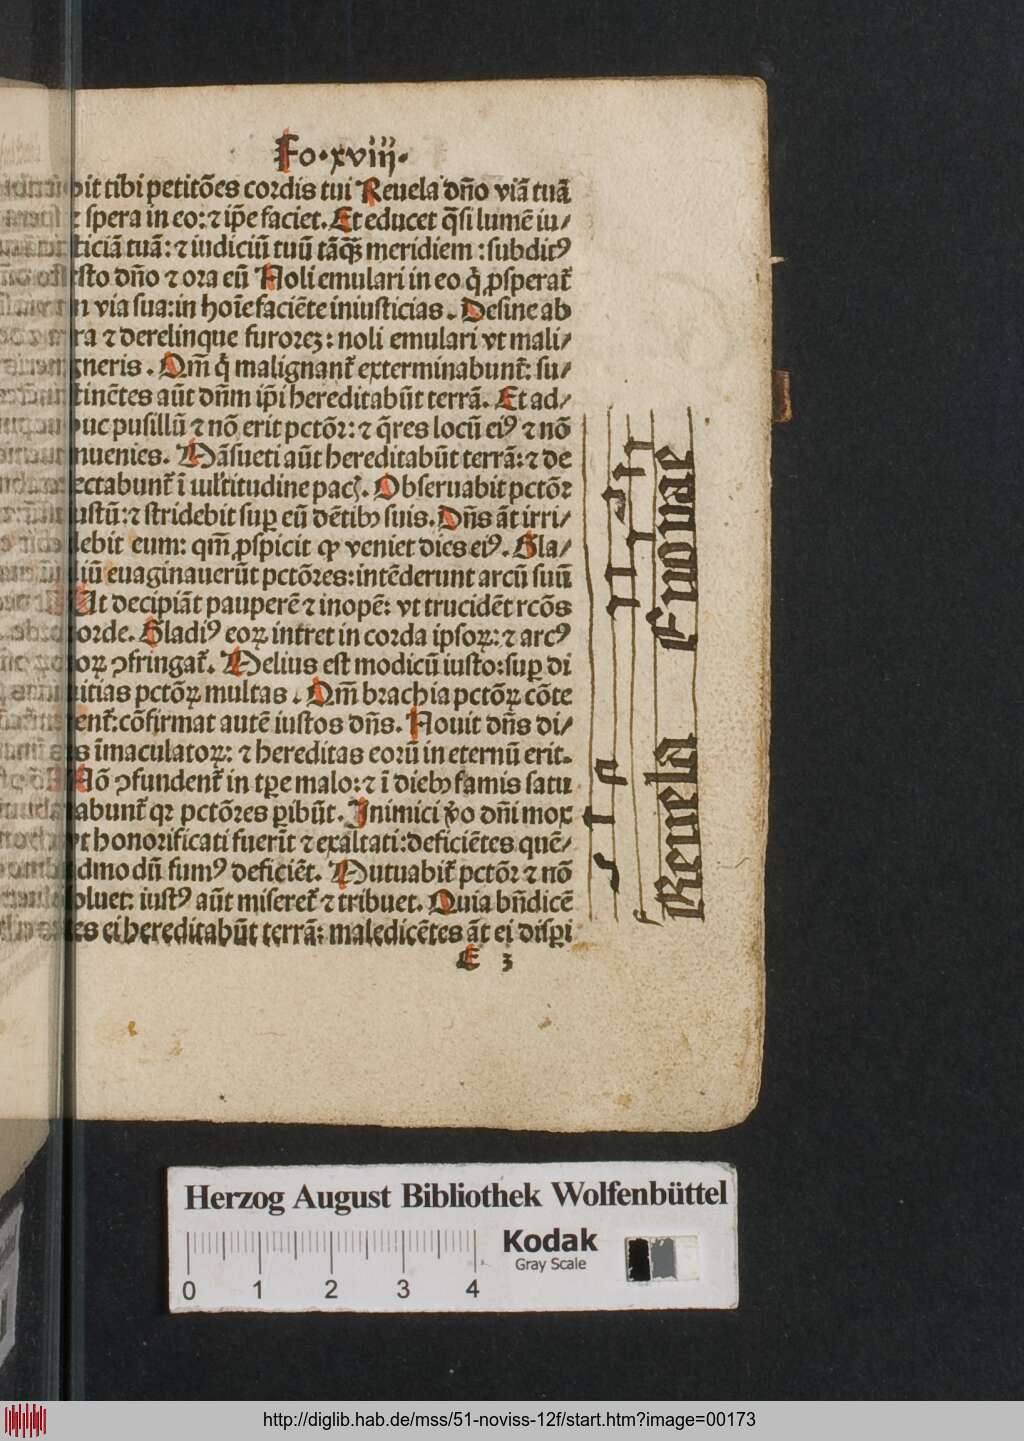 Fo·xviij·
bit tibi petitões cordis tui Reuela dño viã tuã
⁊ spera in eo: ⁊ ip̃e faciet. Et educet q̃si lumẽ iu/
ticiã tuã: ⁊ iudiciũ tuũ tãꝗ̃ meridiem: subditꝰ
esto dño ⁊ ora eũ Noli emulari in eo q̇ ꝓsperat᷑
in via sua: in hoĩe faciẽte iniusticias. Desine ab
ira ⁊ derelinque furoreꝫ: noli emulari vt mali/
gneris. Qm̃ q̇ malignant᷑ exterminabunt᷑: su/
tinẽtes aũt dñm ip̃i hereditabũt terrã. Et ad/
huc pusillũ ⁊ nõ erit pctõꝛ: ⁊ q̃res locũ eiꝰ ⁊ nõ
inuenies. Mãsueti aũt hereditabũt terrã: ⁊ de
lectabunt᷑ ĩ multitudine pacꝭ. Obseruabit pctõꝛ
iustũ: ⁊ stridebit suꝑ eũ dẽtibꝰ suis. Dñs ãt irri/
debit eum: qm̃ ꝓspicit ꝙ veniet dies eiꝰ. Gla/
diũ euaginauerũt pctõres: intẽderunt arcũ suũ
Ut decipiãt pauperẽ ⁊ inopẽ: vt trucidẽt rcõs
corde. Gladiꝰ eoꝝ intret in corda ipsoꝝ: ⁊ arcꝰ
eoꝝ ꝯfringat᷑. Melius est modicũ iusto: suꝑ di
uitias pctõꝝ multas. Qm̃ brachia pctõꝝ cõte
rent᷑: cõfirmat autẽ iustos dñs. Nouit dñs di/
es ĩmaculatoꝝ: ⁊ hereditas eorũ in eternũ erit.
Nõ ꝯfundent᷑ in tꝑe malo: ⁊ ĩ diebꝰ famis satu
rabunt᷑ qꝛ pctões ꝑibũt. Inimici ṽo dñi mox
vt honorificati fuerĩt ⁊ exaltati: deficiẽtes quẽ/
admodũ fumꝰ deficiẽt. Mutuabit᷑ pctõꝛ ⁊ nõ
soluet: iustꝰ aũt miseret᷑ ⁊ tribuet. Quia bñdicẽ
tes ei hereditabũt terrã: maledicẽtes ãt ei disꝑi
E 3
Reuela Euouae
Herzog August Bibliothek Wolfenbüttel
Kodak
Gray Scale
0 1 2 3 4
http://diglib.hab.de/mss/51-noviss-12f/start.htm?image=00173